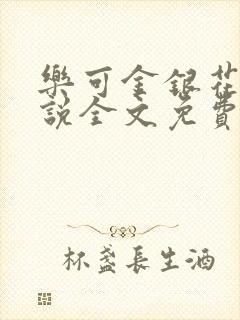 樂可金銀花
說全文免費
杯盞長生酒